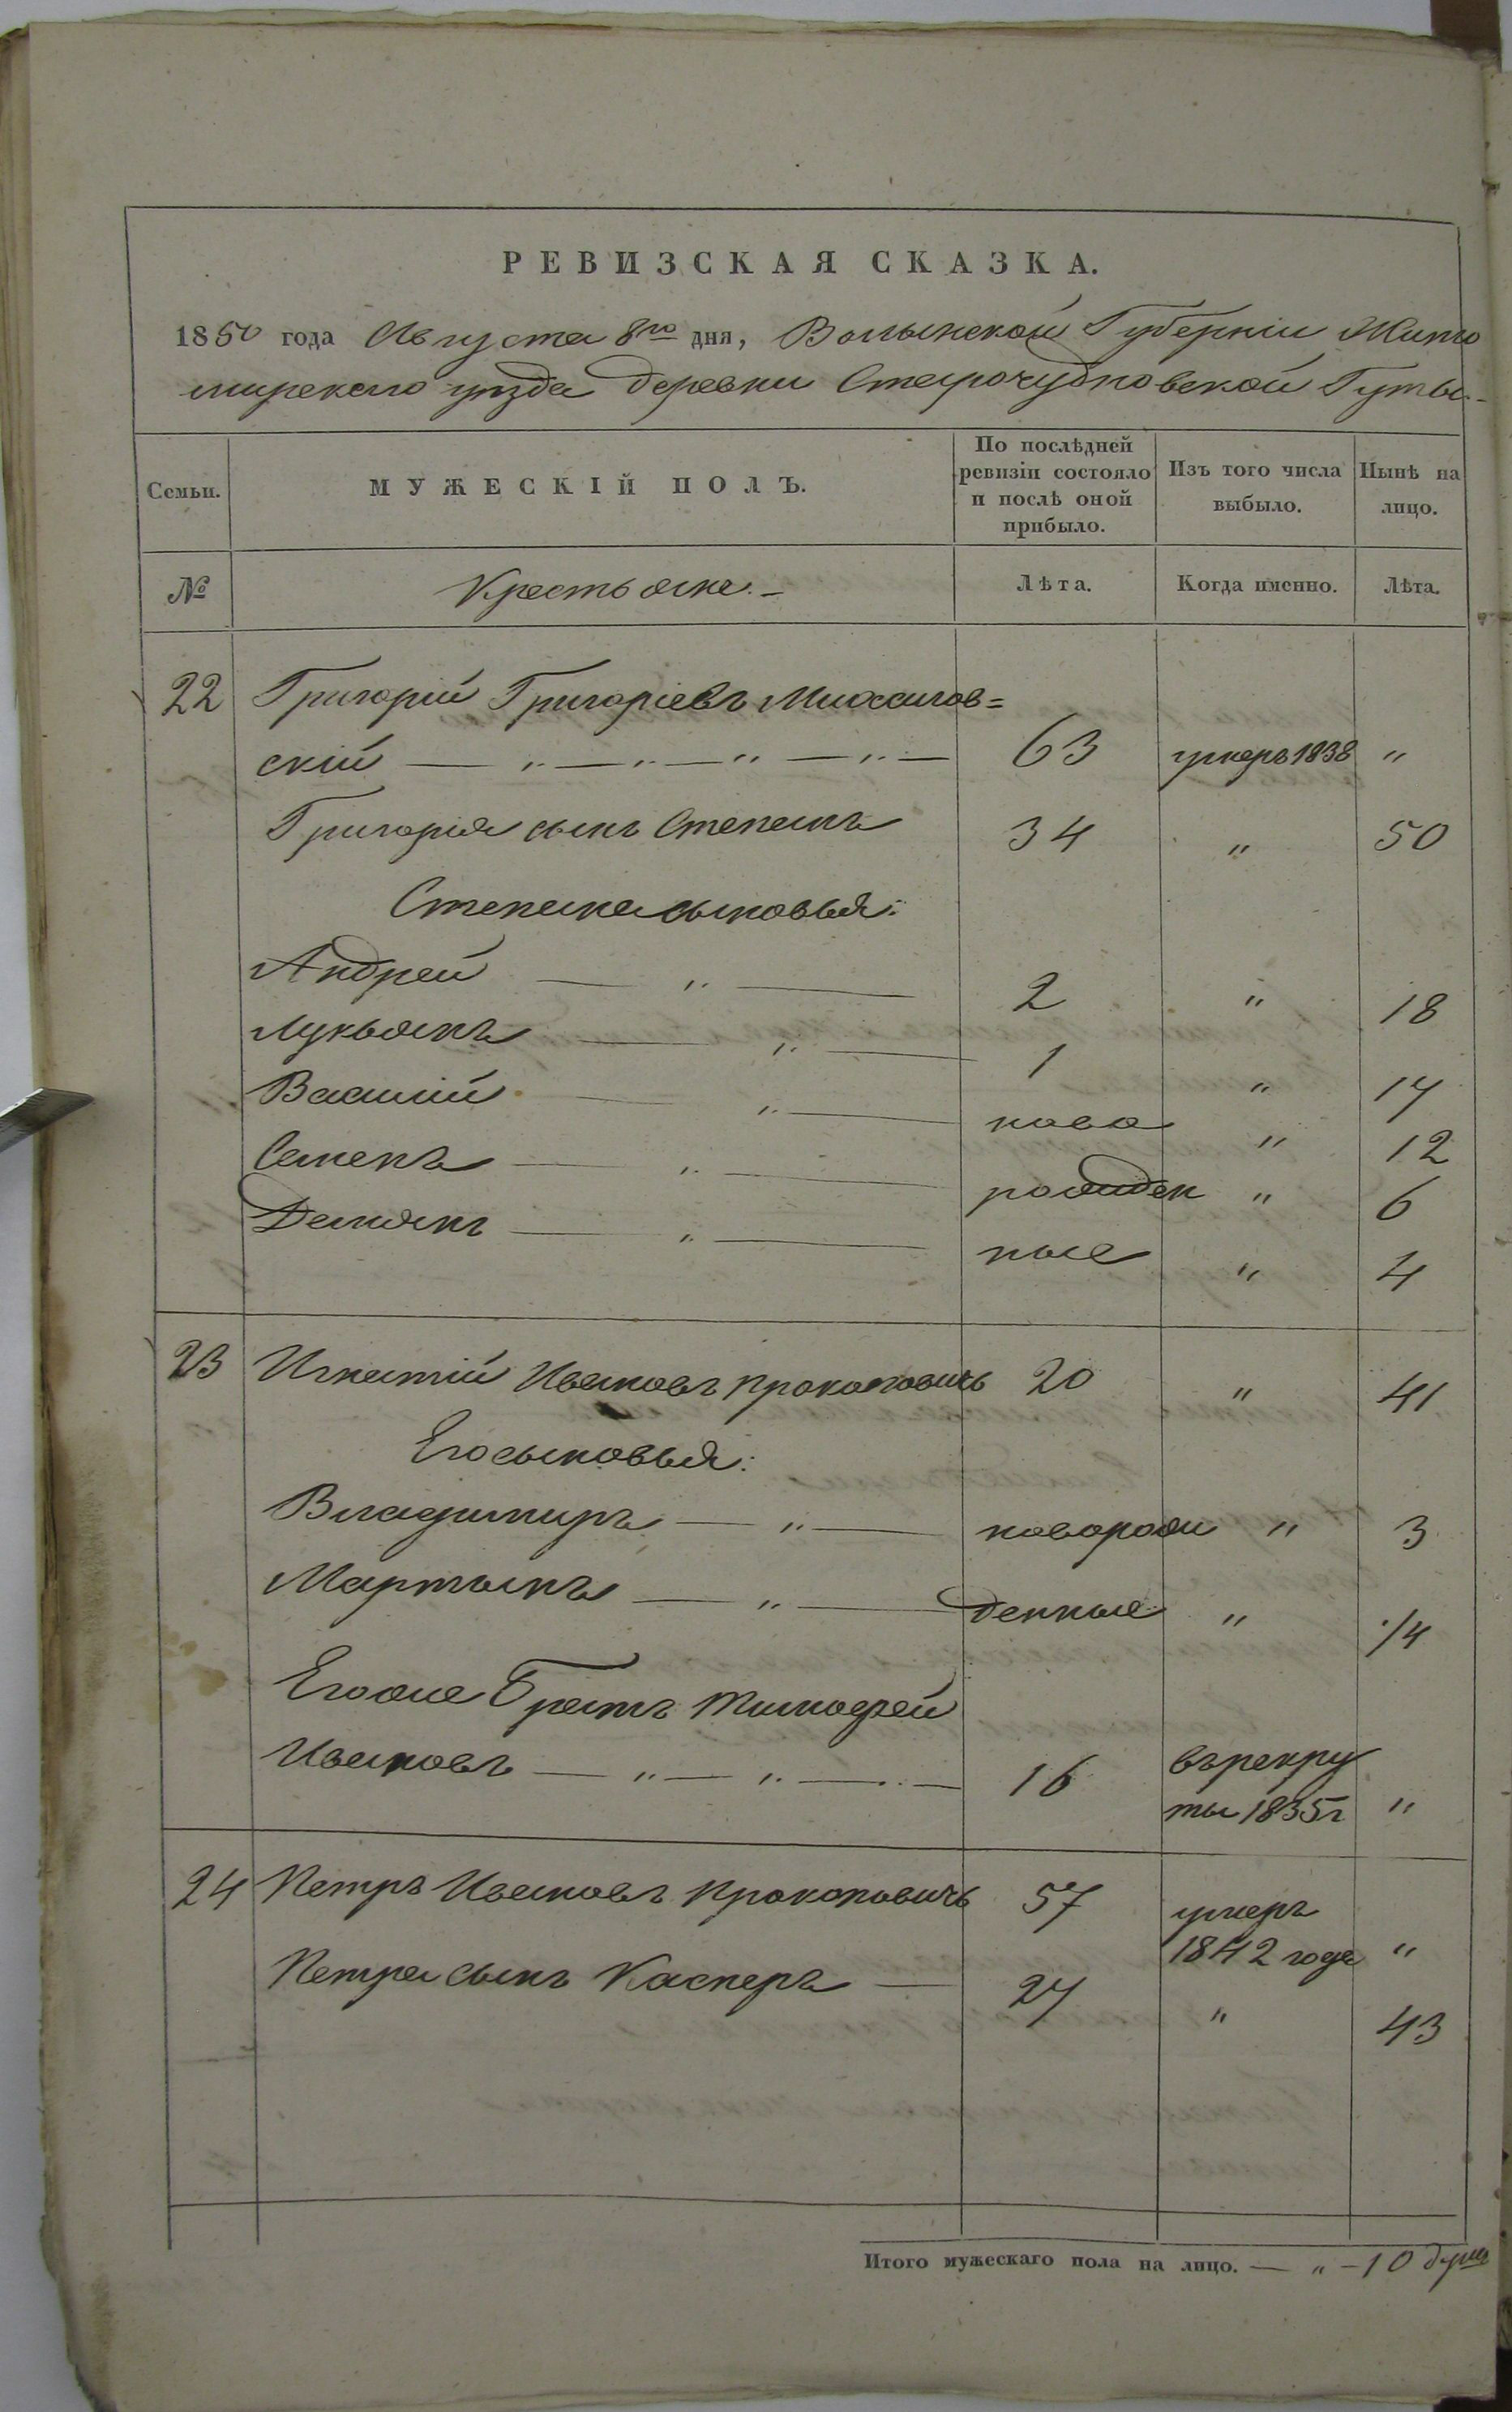 РЕВИЗСКАЯ СКАЗКА.
1850 года Августа 8го дня, Волынской Губерніи Жито
мирскаго уѣзда деревни Старочудновской Гуты.
Семьи. МУЖЕСКІЙ ПОЛЪ. По послѣдней ревизіи состояло и послѣ оной прибыло. Изъ того числа выбыло. Нынѣ на лицо.
№ Крестьяне. Лѣта. Когда именно. Лѣта.
22 Григорій Григоріевъ Михалов=
скій — „ — „ — „ — 63 умеръ 1838 „
Григорія сынъ Степанъ 34 „ 50
Степана сыновья:
Андрей — „ — 2 „ 18
Лукьянъ — „ — 1 „ 17
Василій — „ — ново „ 12
Семенъ — „ — рожден „ 6
Демянъ — „ — ные „ 4
23 Игнатій Ивановъ Прокоповичь 20 „ 41
Его сыновья:
Владимиръ — „ — новорож „ 3
Мартынъ — „ — денные „ 1/4
Егоже Братъ Тимофей
Ивановъ — „ — „ — „ — 16 въ рекру
ты 1835г „
24 Петръ Ивановъ Прокоповичь 57 умеръ
1842 года „
Петра сынъ Касперъ — 27 „ 43
Итого мужескаго пола на лицо. — „ — 10 душъ